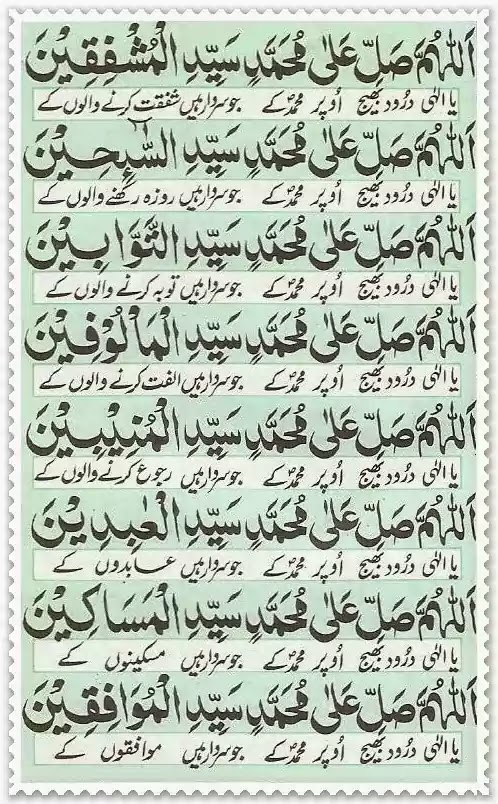 اَللّٰهُمَّ صَلِّ عَلٰى مُحَمَّدٍ سَيِّدِ الْمُشْفِقِيْنَ
یا الٰہی درُود بھیج اُوپر محمدؐ کے جو سردار ہیں شفقت کرنے والوں کے
اَللّٰهُمَّ صَلِّ عَلٰى مُحَمَّدٍ سَيِّدِ السَّآئِحِيْنَ
یا الٰہی درُود بھیج اُوپر محمدؐ کے جو سردار ہیں روزہ رکھنے والوں کے
اَللّٰهُمَّ صَلِّ عَلٰى مُحَمَّدٍ سَيِّدِ التَّوَّابِيْنَ
یا الٰہی درُود بھیج اُوپر محمدؐ کے جو سردار ہیں توبہ کرنے والوں کے
اَللّٰهُمَّ صَلِّ عَلٰى مُحَمَّدٍ سَيِّدِ الْمَأْلُوْفِيْنَ
یا الٰہی درُود بھیج اُوپر محمدؐ کے جو سردار ہیں الفت کرنے والوں کے
اَللّٰهُمَّ صَلِّ عَلٰى مُحَمَّدٍ سَيِّدِ الْمُنِيْبِيْنَ
یا الٰہی درُود بھیج اُوپر محمدؐ کے جو سردار ہیں رجوع کرنے والوں کے
اَللّٰهُمَّ صَلِّ عَلٰى مُحَمَّدٍ سَيِّدِ الْعٰبِدِيْنَ
یا الٰہی درُود بھیج اُوپر محمدؐ کے جو سردار ہیں عابدوں کے
اَللّٰهُمَّ صَلِّ عَلٰى مُحَمَّدٍ سَيِّدِ الْمَسَاكِيْنَ
یا الٰہی درُود بھیج اُوپر محمدؐ کے جو سردار ہیں مسکینوں کے
اَللّٰهُمَّ صَلِّ عَلٰى مُحَمَّدٍ سَيِّدِ الْمُوَافِقِيْنَ
یا الٰہی درُود بھیج اُوپر محمدؐ کے جو سردار ہیں موافقوں کے